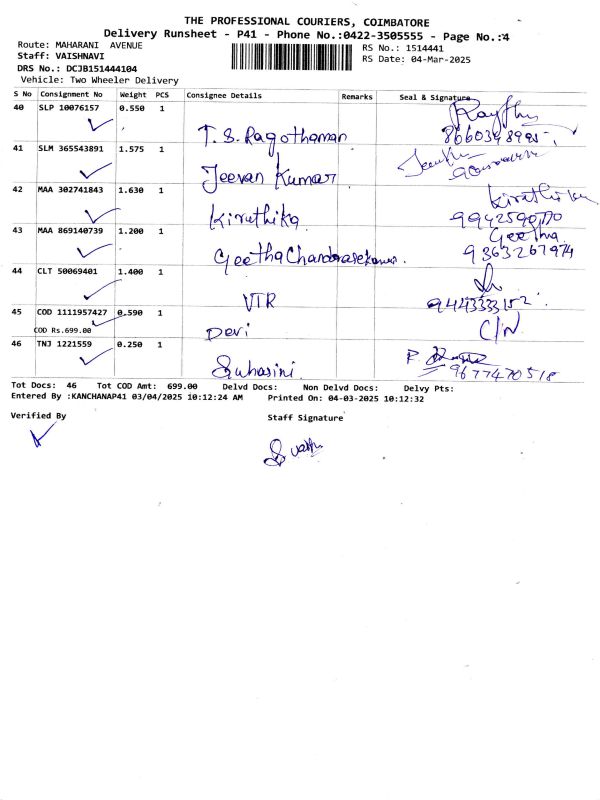 THE PROFESSIONAL COURIERS, COIMBATORE
Delivery Runsheet - P41 - Phone No.:0422-3505555 - Page No.:4
Route: MAHARANI AVENUE
Staff: VAISHNAVI
DRS No.: DCJB151444104
Vehicle: Two Wheeler Delivery
RS No.: 1514441
RS Date: 04-Mar-2025
S No Consignment No Weight PCS Consignee Details Remarks Seal & Signature
40 SLP 10076157 0.550 1 T.S. Ragothaman
41 SLM 365543891 1.575 1 Jeevan Kumar
42 MAA 302741843 1.630 1 Kiruthika
43 MAA 869140739 1.200 1 Geetha Chandrasekaran. Geetha 9363267974
44 CLT 50069401 1.400 1 VTR 9443333152
45 COD 1111957427 0.590 1 Devi C/N
COD Rs.699.00
46 TNJ 1221559 0.250 1 Suhasini 9677470518
Tot Docs: 46 Tot COD Amt: 699.00 Delvd Docs: Non Delvd Docs: Delvy Pts:
Entered By :KANCHANAP41 03/04/2025 10:12:24 AM Printed On: 04-03-2025 10:12:32
Verified By Staff Signature